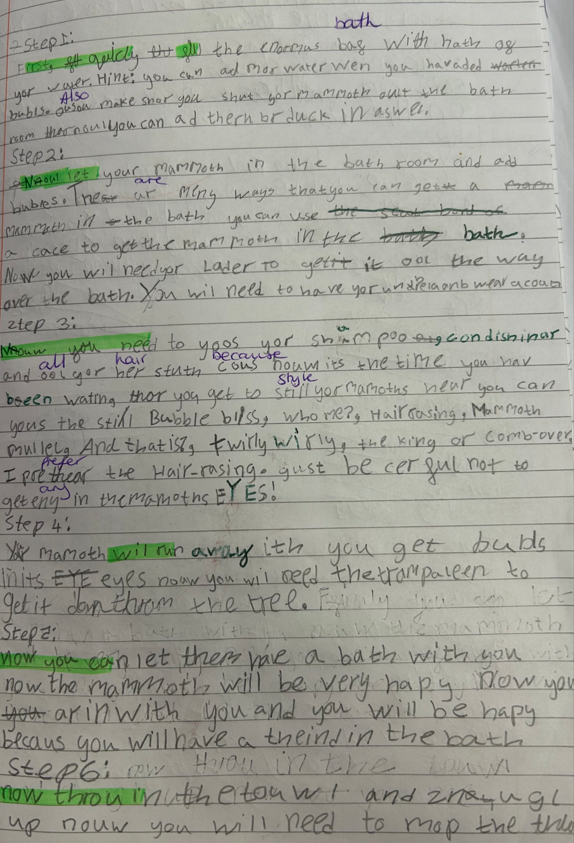 bath
Step1:
quicly the enormus bag With bath og
yor water. Hint: you can ad mor water wen you havaded
bublse. Also make shor you shut yor mammoth out the bath
room you can ad ther duck in aswel.
Step2:
let your mammoth in the bath room and add
bubles. are meny ways that you can get a
mammoth in the bath you can use
a cace to get the mammoth in the bath.
Now you wil need yor Lader To get it ool the way
over the bath. You wil need to have yor wear a coat
step 3:
Nouw you need to yoos yor shampoo condishinar
and all yor hair stuth because nouw its the time you hav
been wating thor you get to style yor mamoths hear you can
yous the still Bubble bliss, who me?, Hair rasing, Mammoth
mullet, And thatis?, twirly wirly, the king or comb-over
I prefer the Hair-rasing. gust be cerful not to
get any in the mamoths EYES!
Step 4:
mamoth wil run away ith you get bubls
in its eyes nouw you wil need the trampaleen to
get it down throm the tree.
Step2:
now you can let them have a bath with you
now the mammoth will be very hapy Now you
ar in with you and you will be hapy
becaus you will have a in the bath
Step6:
now throu in the towl and snuggl
up nouw you will need to mop the